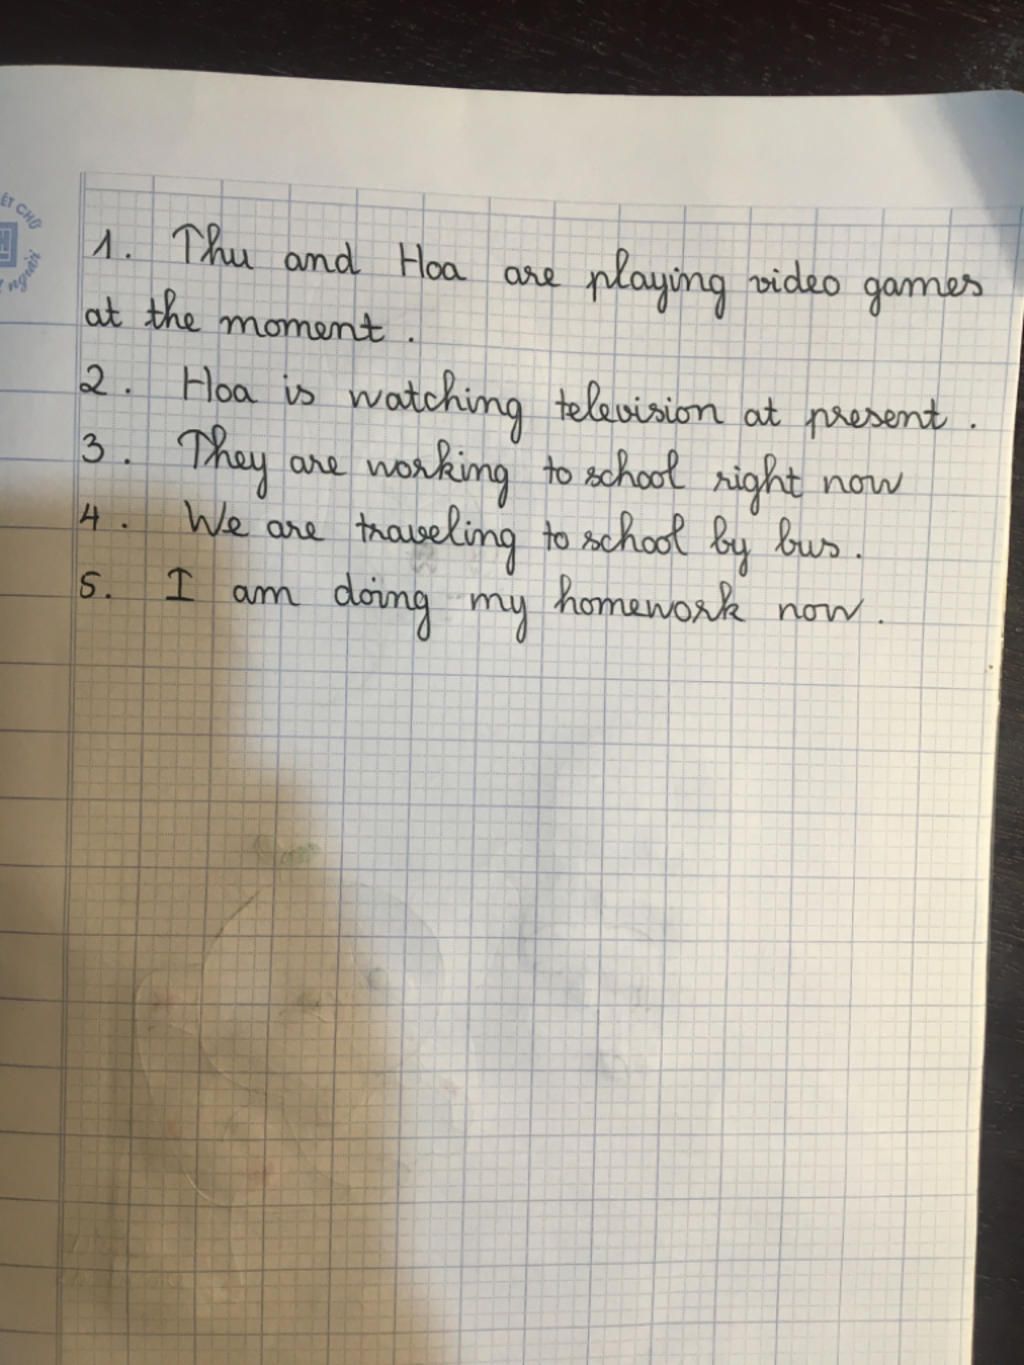 ẾT CHỮ
người
1. Thu and Hoa are playing video games
at the moment.
2. Hoa is watching television at present.
3. They are working to school right now
4. We are traveling to school by bus.
5. I am doing my homework now.